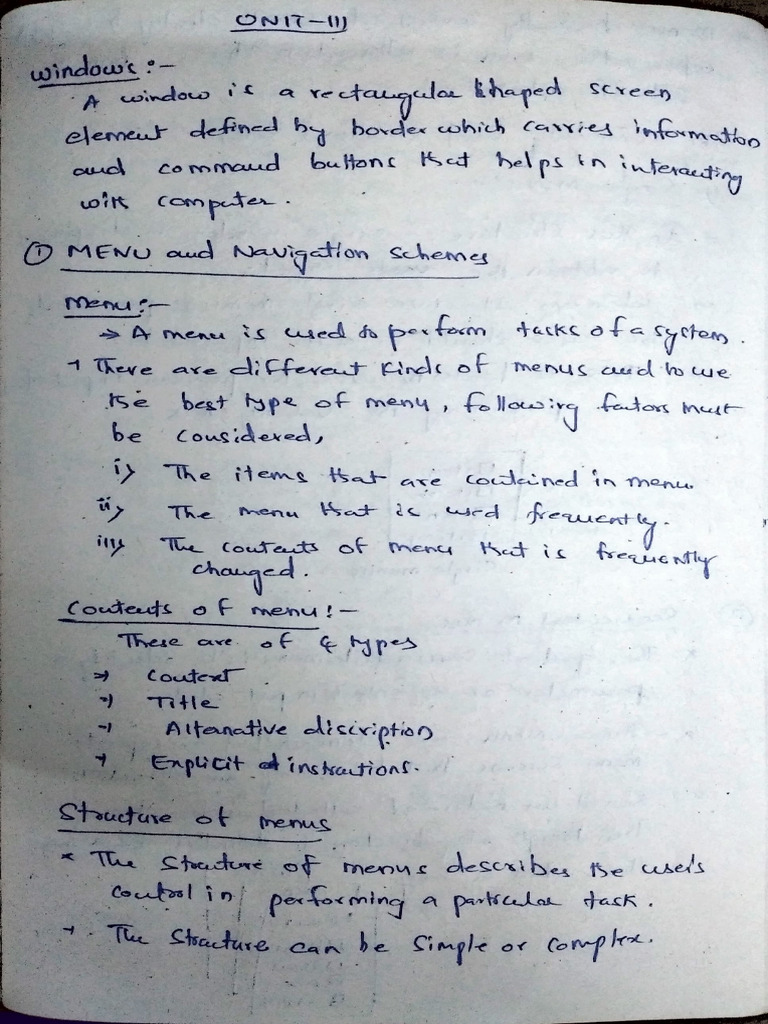 UNIT-III
Windows :-
A window is a rectangular shaped screen
element defined by border which carries information
and command buttons that helps in interacting
with computer.
① MENU and Navigation schemes
Menu:-
→ A menu is used to perform tasks of a system.
→ There are different kinds of menus and to use
the best type of menu, following factors must
be considered,
i) The items that are contained in menu.
ii) The menu that is used frequently.
iii) The contents of menu that is frequently
changed.
Contents of menu:-
These are of 4 types
→ Context
→ Title
→ Alternative discription
→ Explicit instructions.
Structure of menus
* The structure of menus describes the user's
control in performing a particular task.
→ The structure can be simple or complex.